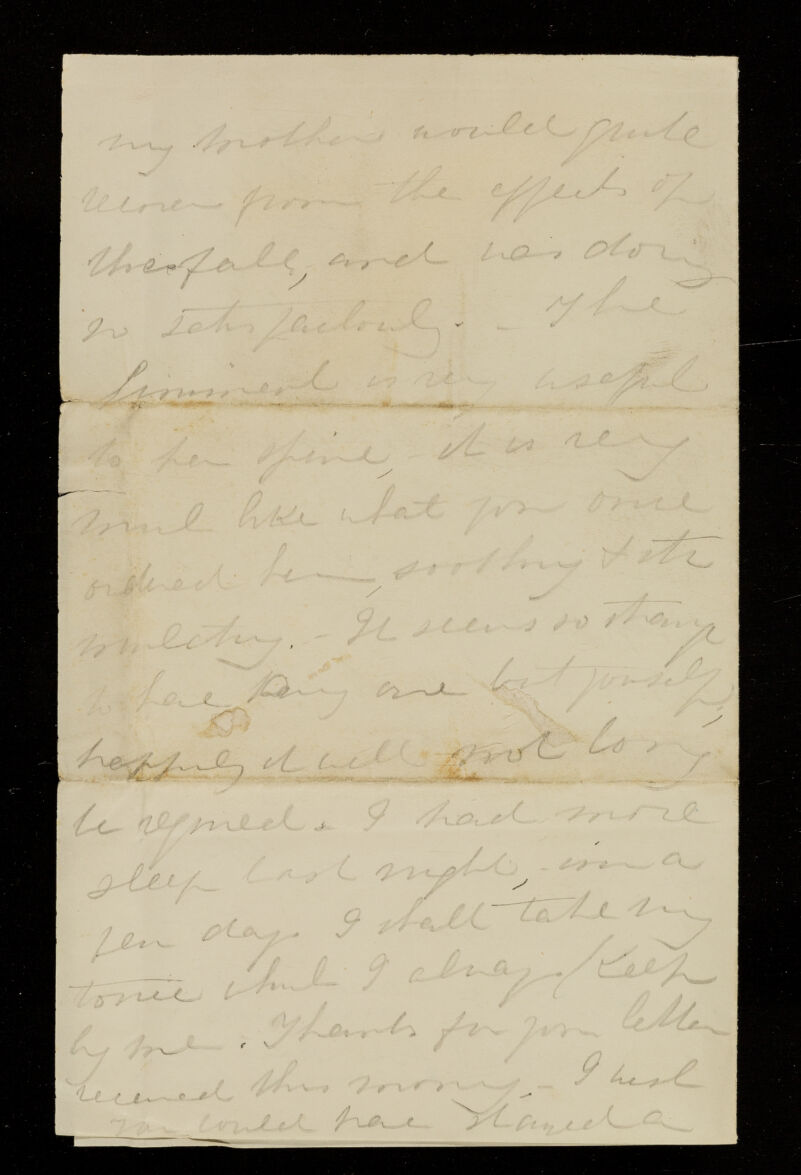 my mother would quite
recover from the effects of
the fall, and was doing
so satisfactorily. - The
Liniment is very useful
to her spine, - it is very
much like what you once
ordered her, soothing & sti
mulating. - It seems so strange
to have any one but yourself,
happily it will not long
be required. I had more
sleep last night, - in a
few days I shall take my
tonic which I always keep
by me. Thanks for your letter
received this morning - I wish
you could have stayed a